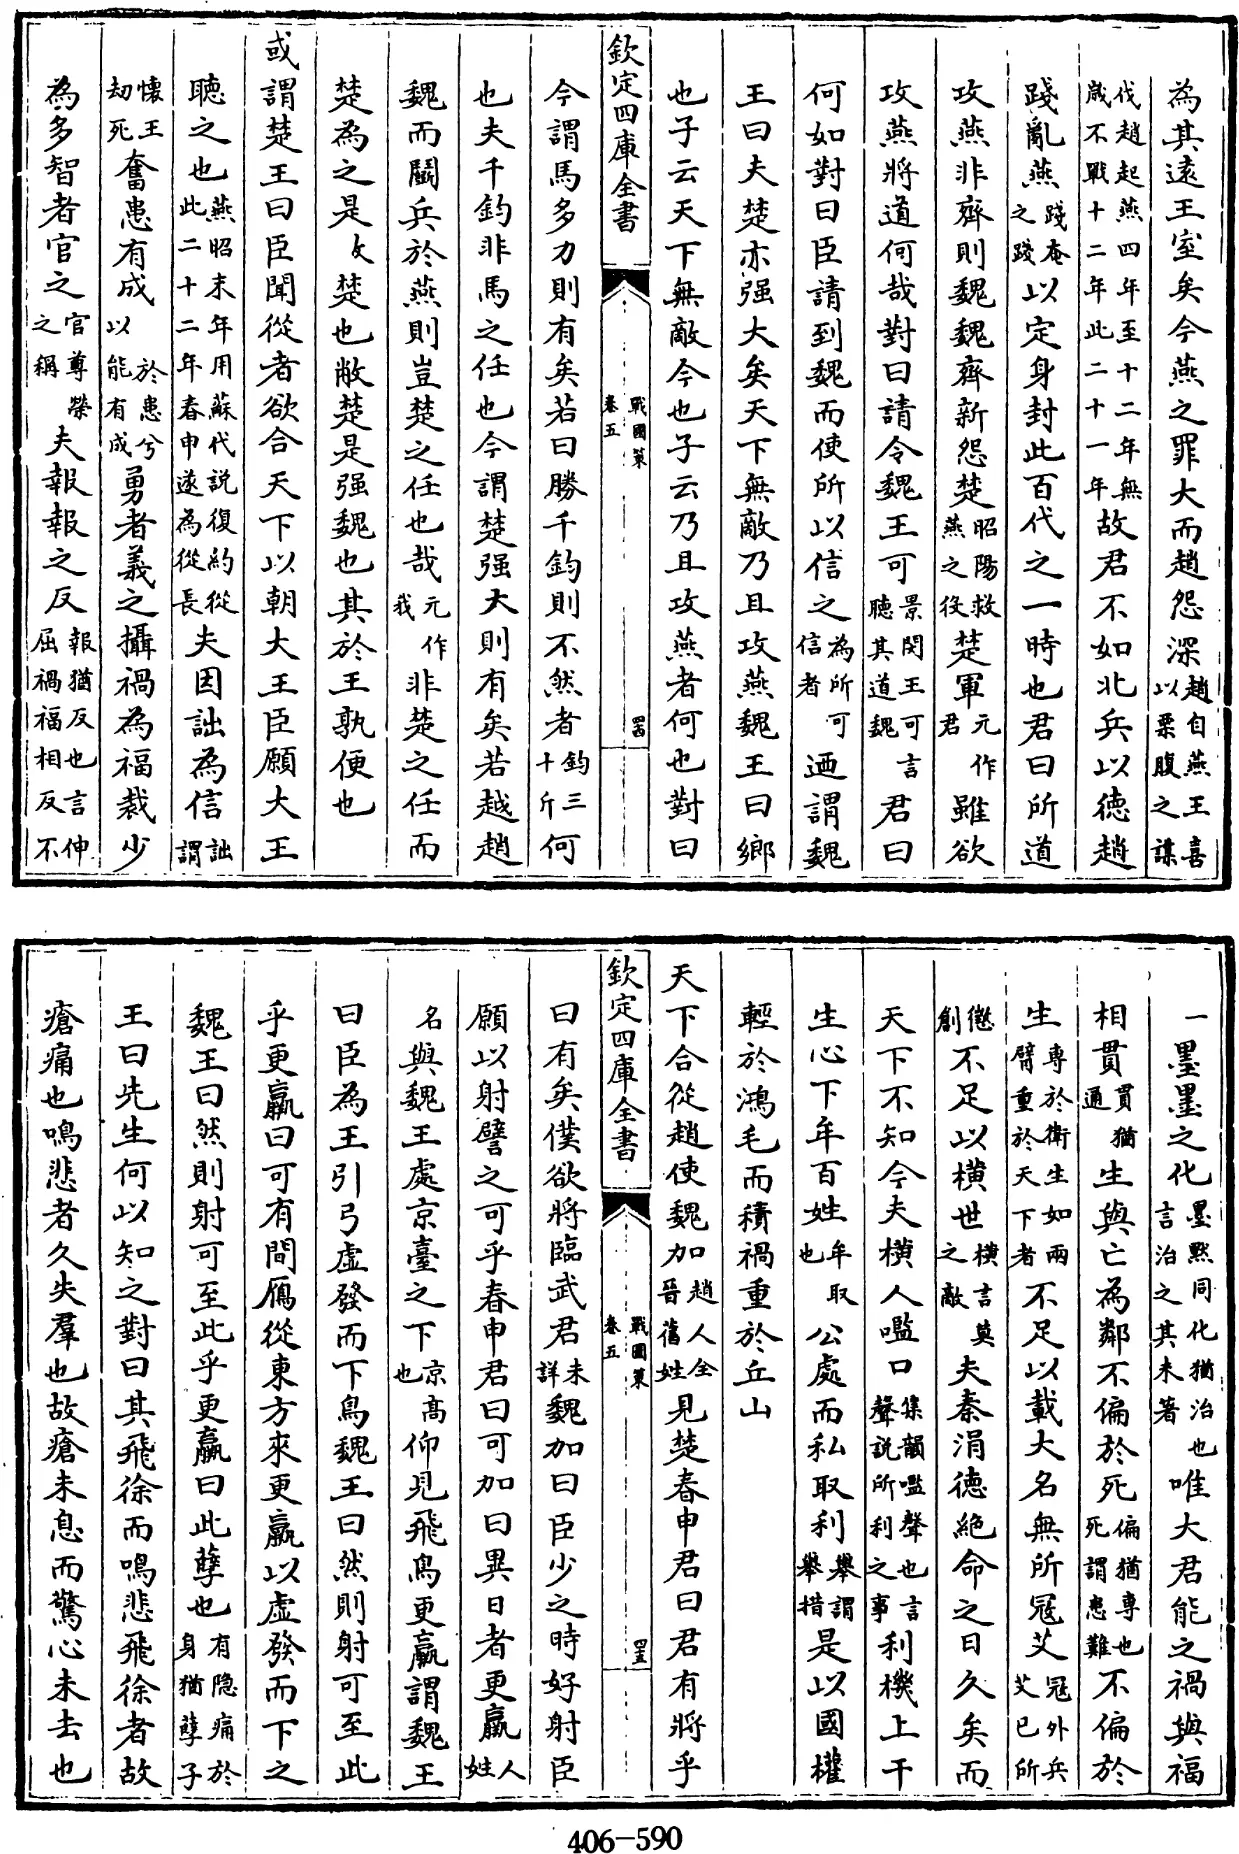 為其逺王室矣今燕之罪大而趙怨深趙自燕王喜以栗腹之謀
伐趙起燕四年至十二年無歲不戰十二年此二十一年故君不如北兵以徳趙
踐亂燕踐奄之踐以定身封此百代之一時也君曰所道
攻燕非齊則魏魏齊新怨楚昭陽救燕之役楚軍元作君雖欲
攻燕將道何哉對曰請令魏王可景閔王可言聴其道魏君曰
何如對曰臣請到魏而使所以信之為所可信者迺謂魏
王曰夫楚亦强大矣天下無敵乃且攻燕魏王曰鄉
也子云天下無敵今也子云乃且攻燕者何也對曰
欽定四庫全書
戰國策
卷五
四十四
今謂馬多力則有矣若曰勝千鈞則不然者鈞三十斤何
也夫千鈞非馬之任也今謂楚强大則有矣若越趙
魏而鬭兵於燕則豈楚之任也哉元作我非楚之任而
楚為之是攵楚也敝楚是强魏也其於王孰便也
或謂楚王曰臣聞從者欲合天下以朝大王臣願大王
聴之也燕昭末年用蘇代說復約從此二十二年春申遂為從長夫因詘為信詘謂
懐王刧死奮患有成於患兮以能有成勇者義之攝禍為福裁少
為多智者官之官尊榮之稱夫報報之反報猶反也言伸屈禍福相反不
一墨墨之化墨默同化猶治也言治之其未著唯大君能之禍與福
相貫貫猶通生與亡為鄰不偏於死偏猶専也死謂患難不偏於
生専於衛生如兩臂重於天下者不足以載大名無所冦艾冦外兵艾已所
懲創不足以橫世橫言莫之敵夫秦涓徳絶命之日久矣而
天下不知今夫橫人嚂口集韻嚂聲也言聲説所利之事利機上干
生心下年百姓年取也公處而私取利舉謂舉措是以國權
輕於鴻毛而積禍重於丘山
天下合從趙使魏加趙人全晉舊姓見楚春申君曰君有將乎
欽定四庫全書
戰國策
卷五
四十五
曰有矣僕欲將臨武君未詳魏加曰臣少之時好射臣
願以射譬之可乎春申君曰可加曰異日者更羸人姓
名與魏王處京臺之下京高也仰見飛鳥更羸謂魏王
曰臣為王引弓虚發而下鳥魏王曰然則射可至此
乎更羸曰可有間鴈從東方來更羸以虚發而下之
魏王曰然則射可至此乎更羸曰此孽也有隠痛於身猶孽子
王曰先生何以知之對曰其飛徐而鳴悲飛徐者故
瘡痛也鳴悲者久失羣也故瘡未息而驚心未去也
406-590